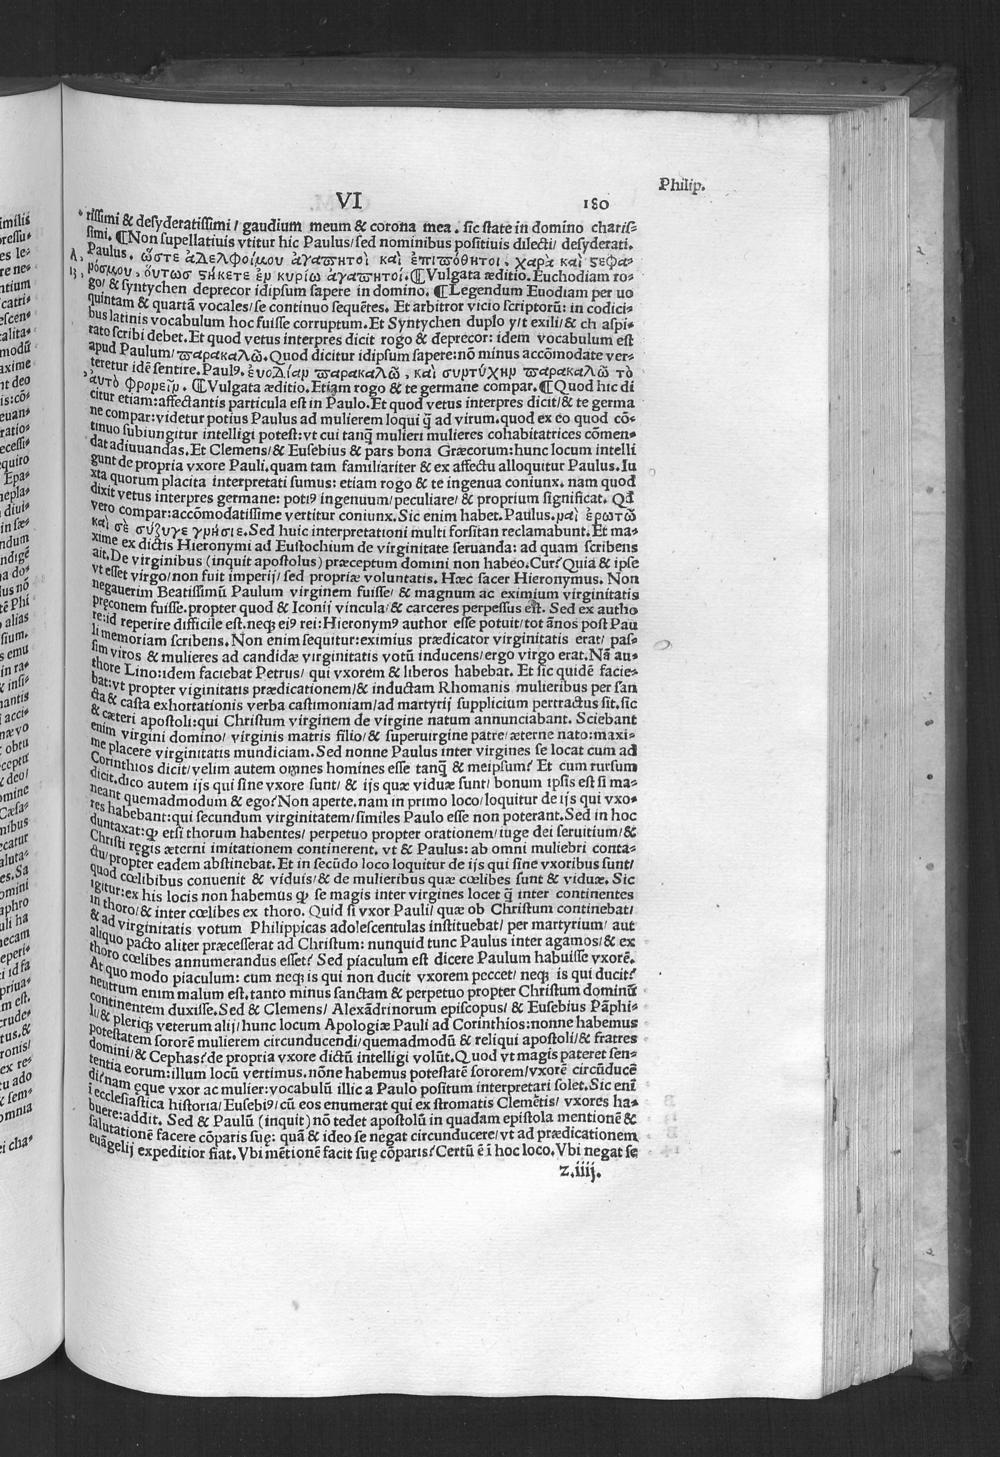 Philip.
VI 180
rissimi & desyderatissimi/ gaudium meum & corona mea. sic state in domino charis=
simi. ¶Non supellatiuis vtitur hic Paulus/sed nominibus positiuis dilecti/ desyderati.
Paulus. ὥστε ἀδελφοίμου ἀγαπητοὶ καὶ ἐπιπόθητοι. χαρὰ καὶ ϛεφα=
νόσμου, ὅυτωσ ϛήκετε ἐν κυρίω ἀγαπητοι.¶Vulgata æditio. Euchodiam ro=
go/ & syntychen deprecor idipsum sapere in domino. ¶Legendum Euodiam per uo
quintam & quartã vocales/se continuo sequẽtes. Et arbitror vicio scriptorũ: in codici=
bus latinis vocabulum hoc fuisse corruptum.Et Syntychen duplo y/t exili/& ch aspi=
rato scribi debet. Et quod vetus interpres dicit rogo & deprecor: idem vocabulum est
apud Paulum/ παρακαλῶ. Quod dicitur idipsum sapere: nõ minus accõmodate ver=
teretur idẽ sentire. Paulꝰ. ἐυοδίαν παρακαλῶ, καὶ συντύχην παρακαλῶ τὸ
ἀυτὸ φρονεῖν. ¶Vulgata æditio. Etiam rogo & te germane compar.¶Quod hic di
citur etiam: affectantis particula est in Paulo. Et quod vetus interpres dicit/& te germa
ne compar: videtur potius Paulus ad mulierem loqui q̃ ad virum. quod ex eo quod cõ=
tinuo subiungitur intelligi potest: vt cui tanq̃ mulieri mulieres cohabitatrices cõmen=
dat adiuuandas. Et Clemens/& Eusebius & pars bona Græcorum: hunc locum intelli
gunt de propria vxore Pauli. quam tam familiariter & ex affectu alloquitur Paulus. Iu
xta quorum placita interpretati sumus: etiam rogo & te ingenua coniunx. nam quod
dixit vetus interpres germane: potiꝰ ingenuum/peculiare/& proprium significat. Qđ
vero compar: accõmodatissime vertitur coniunx. Sic enim habet. Paulus. ναὶ ἐρωτῶ
καὶ σὲ σύζυγε γνήσιε. Sed huic interpretationi multi forsitan reclamabunt. Et ma=
xime ex dictis Hieronymi ad Eustochium de virginitate seruanda: ad quam scribens
ait. De virginibus (inquit apostolus) præceptum domini non habeo. Cur? Quia & ipse
vt esset virgo/non fuit imperij/ sed propriæ voluntatis. Hæc sacer Hieronymus. Non
negauerim Beatissimũ Paulum virginem fuisse/ & magnum ac eximium virginitatis
pręconem fuisse. propter quod & Iconij vincula/& carceres perpessus est. Sed ex autho
re: id reperire difficile est. neqꝫ eiꝰ rei: Hieronymꝰ author esse potuit/tot ãnos post Pau
li memoriam scribens. Non enim sequitur: eximius prædicator virginitatis erat/ pas=
sim viros & mulieres ad candidæ virginitatis votũ inducens/ergo virgo erat. Nã au=
thore Lino: idem faciebat Petrus/ qui vxorem & liberos habebat. Et sic quidẽ facie=
bat: vt propter viginitatis prædicationem/& inductam Rhomanis mulieribus per san
cta & casta exhortationis verba castimoniam/ad martyrij supplicium pertractus sit. sic
& cæteri apostoli: qui Christum virginem de virgine natum annunciabant. Sciebant
enim virgini domino/ virginis matris filio/& superuirgine patre/æterne nato: maxi=
me placere virginitatis mundiciam. Sed nonne Paulus inter virgines se locat cum ad
Corinthios dicit/velim autem omnes homines esse tanq̃ & meipsum? Et cum rursum
dicit. dico autem ijs qui sine vxore sunt/ & ijs quæ viduæ sunt/ bonum ipsis est si ma=
neant quemadmodum & ego? Non aperte. nam in primo loco/loquitur de ijs qui vxo=
res habebant: qui secundum virginitatem/similes Paulo esse non poterant. Sed in hoc
duntaxat: ꝙ etsi thorum habentes/ perpetuo propter orationem/iuge dei seruitium/&
Christi regis æterni imitationem continerent. vt & Paulus: ab omni muliebri conta=
ctu/propter eadem abstinebat. Et in secũdo loco loquitur de ijs qui sine vxoribus sunt/
quod cœlibibus conuenit & viduis/& de mulieribus quæ cœlibes sunt & viduæ. Sic
igitur: ex his locis non habemus ꝙ se magis inter virgines locet q̃ inter continentes
in thoro/& inter cœlibes ex thoro. Quid si vxor Pauli/ quæ ob Christum continebat/
& ad virginitatis votum Philippicas adolescentulas instituebat/ per martyrium/ aut
aliquo pacto aliter præcesserat ad Christum: nunquid tunc Paulus inter agamos/& ex
thoro cœlibes annumerandus esset? Sed piaculum est dicere Paulum habuisse vxorẽ.
At quo modo piaculum: cum neqꝫ is qui non ducit vxorem peccet/ neqꝫ is qui ducit?
neutrum enim malum est. tanto minus sanctam & perpetuo propter Christum dominũ
continentem duxisse. Sed & Clemens/ Alexãdrinorum episcopus/ & Eusebius Pãphi=
li/& pleriqꝫ veterum alij/hunc locum Apologiæ Pauli ad Corinthios: nonne habemus
potestatem sororẽ mulierem circunducendi/quemadmodũ & reliqui apostoli/& fratres
domini/& Cephas? de propria vxore dictũ intelligi volũt. Quod vt magis pateret sen=
tentia eorum: illum locũ vertimus. nõne habemus potestatẽ sororem/vxorẽ circũducẽ
di? nam ęque vxor ac mulier: vocabulũ illic a Paulo positum interpretari solet. Sic enĩ
i ecclesiastica historia/Eusebiꝰ/cũ eos enumerat qui ex stromatis Clemẽtis/ vxores ha=
buere: addit. Sed & Paulũ (inquit) nõ tedet apostolũ in quadam epistola mentionẽ &
salutationẽ facere cõparis suę: quã & ideo se negat circunducere/vt ad prædicationem
euãgelij expeditior fiat. Vbi mẽtionẽ facit suę cõparis? Certũ ẽ ĩ hoc loco. Vbi negat se
z.iiij.